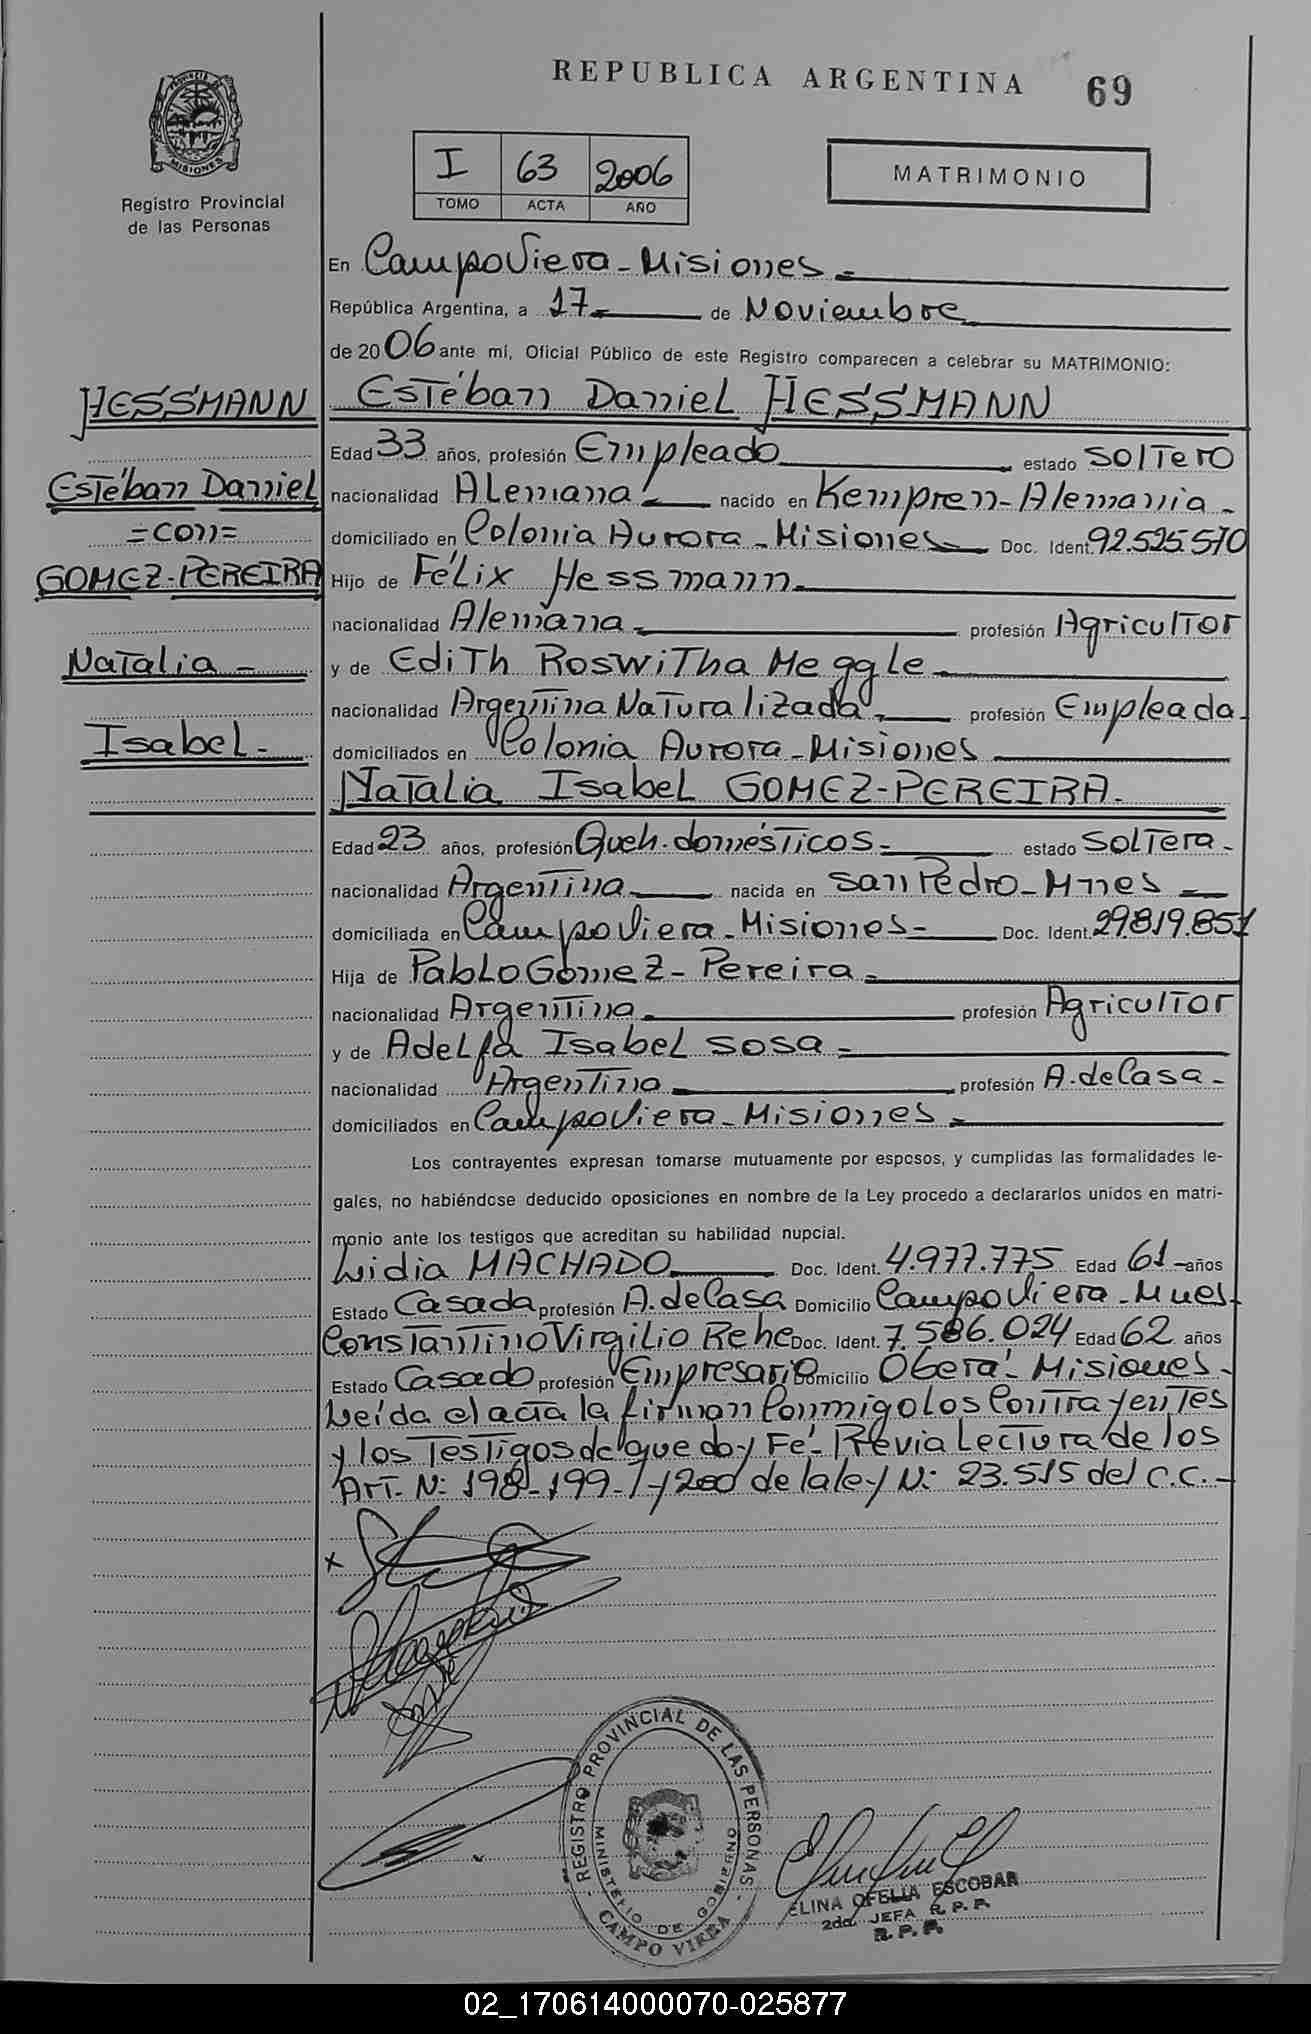 REPUBLICA ARGENTINA 69
PROVINCIA DE MISIONES
Registro Provincial
de las Personas
I 63 2006
TOMO ACTA AÑO
MATRIMONIO
En Campo Viera - Misiones -
República Argentina, a 17 de Noviembre
de 2006 ante mí, Oficial Público de este Registro comparecen a celebrar su MATRIMONIO:
HESSMANN
Estéban Daniel
=con=
GOMEZ-PEREIRA
Natalia -
Isabel -
Estéban Daniel HESSMANN
Edad 33 años, profesión Empleado estado Soltero
nacionalidad Alemana nacido en Kempren - Alemania -
domiciliado en Colonia Aurora - Misiones Doc. Ident. 92.525.570
Hijo de Félix Hessmann
nacionalidad Alemana profesión Agricultor
y de Edith Roswitha Meggle
nacionalidad Argentina Naturalizada profesión Empleada
domiciliados en Colonia Aurora - Misiones
Natalia Isabel GOMEZ-PEREIRA.
Edad 23 años, profesión Queh. domésticos - estado Soltera -
nacionalidad Argentina nacida en San Pedro - Mnes
domiciliada en Campo Viera - Misiones - Doc. Ident. 29.819.851
Hija de Pablo Gómez - Pereira
nacionalidad Argentina profesión Agricultor
y de Adelfa Isabel Sosa
nacionalidad Argentina profesión A. de Casa -
domiciliados en Campo Viera - Misiones
Los contrayentes expresan tomarse mutuamente por esposos, y cumplidas las formalidades le-
gales, no habiéndose deducido oposiciones en nombre de la Ley procedo a declararlos unidos en matri-
monio ante los testigos que acreditan su habilidad nupcial.
Lidia MACHADO Doc. Ident. 4.977.775 Edad 61 años
Estado Casada profesión A. de Casa Domicilio Campo Viera - Mnes
Constantino Virgilio Rehe Doc. Ident. 7.586.024 Edad 62 años
Estado Casado profesión Empresario Domicilio Oberá - Misiones -
Leída el acta la firman Conmigo los Contrayentes
y los Testigos de que doy Fé - Previa Lectura de los
Art. N: 198 - 199 - y 200 de la ley N: 23.515 del C.C. -
x
REGISTRO PROVINCIAL DE LAS PERSONAS
MINISTERIO DE GOBIERNO
CAMPO VIERA
ELINA OFELIA ESCOBAR
2da. JEFA R. P. P.
R. P. P.
02_170614000070-025877